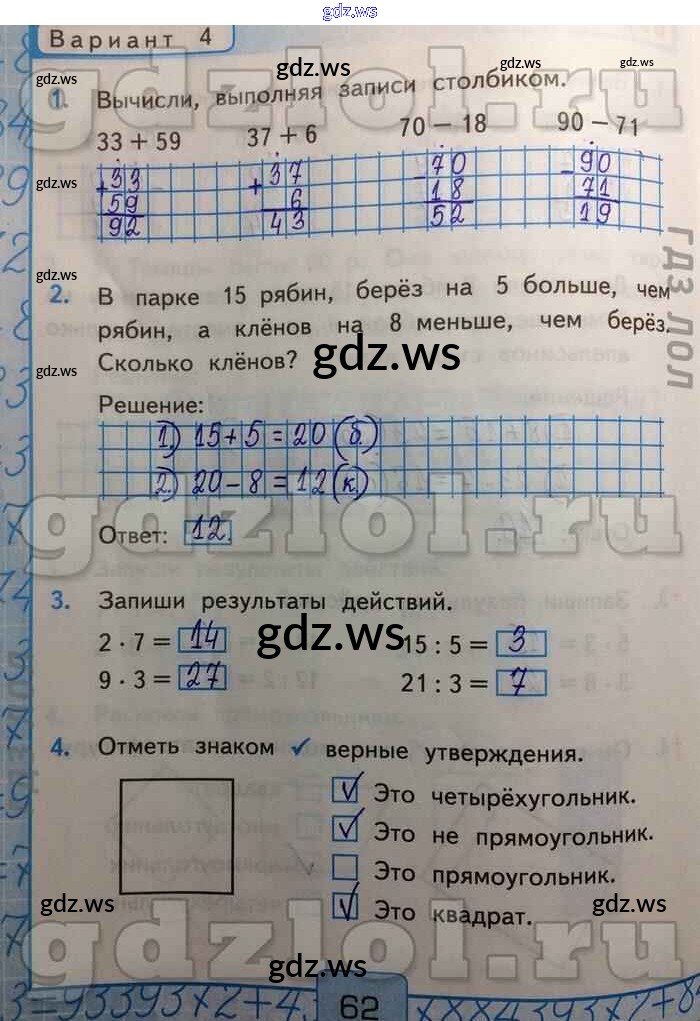 gdz.ws
Вариант 4
gdz.ws
gdz.ws
gdz.ws
gdz.ws
1. Вычисли, выполняя записи столбиком.
33 + 59 37 + 6 70 − 18 90 − 71
+ 33 + 37 − 70 − 90
gdz.ws
gdz.ws
gdz.ws
59 6 18 71
92 43 52 19
gdz.ws
2. В парке 15 рябин, берёз на 5 больше, чем
рябин, а клёнов на 8 меньше, чем берёз.
Сколько клёнов?
gdz.ws
gdz.ws
гдз лол
Решение:
1) 15 + 5 = 20 (б.)
2) 20 − 8 = 12 (к.)
gdzlol.ru
Ответ: 12.
3. Запиши результаты действий.
gdz.ws
2 · 7 = 14 15 : 5 = 3
9 · 3 = 27 21 : 3 = 7
4. Отметь знаком ✓ верные утверждения.
✓ Это четырёхугольник.
✓ Это не прямоугольник.
Это прямоугольник.
✓ Это квадрат.
gdz.ws
gdz.ws
gdzlol.ru
gdz.ws
gdz.ws
62